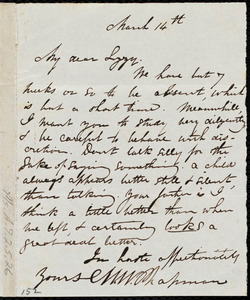 March 14th
My dear Lizzy.
We have but 7
weeks or so to be absent, which
is but a short time. Meanwhile
I want you to study very diligently
& be careful to behave with dis-
cretion. Don't talk silly for the
sake of saying something; a child
always appears better still & silent,
than talking. Your father is I
think a little better than when
we left & certainly looks a
great deal better.
In haste affectionately
Yours MW Chapman
15th